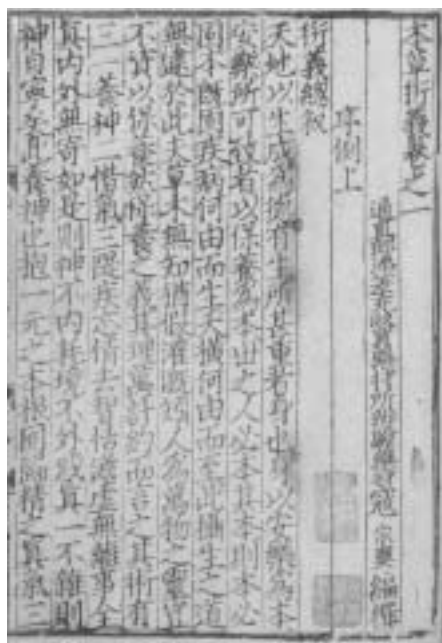 本草衍義卷之一
通直郎添差充收買藥材所辨驗藥材寇宗奭編撰
序例上
衍義總敘
天地以生成為德有生所甚重者身也身以安樂為本
安樂所可致者以保養為本世之人必本其本則本必
固本既固疾病何由而生夭橫何由而至此攝生之道
無逮於此夫草木無知猶假灌溉矧人為萬物之靈豈
不資以保養然保養之義其理萬計約而言之其術有
三一養神二惜氣三隄疾忘情去智恬澹虛無離事全
真內外無寄如是則神不內耗境不外惑真一不雜則
神自寧矣此養神也抱一元之本根固歸精之真氣三